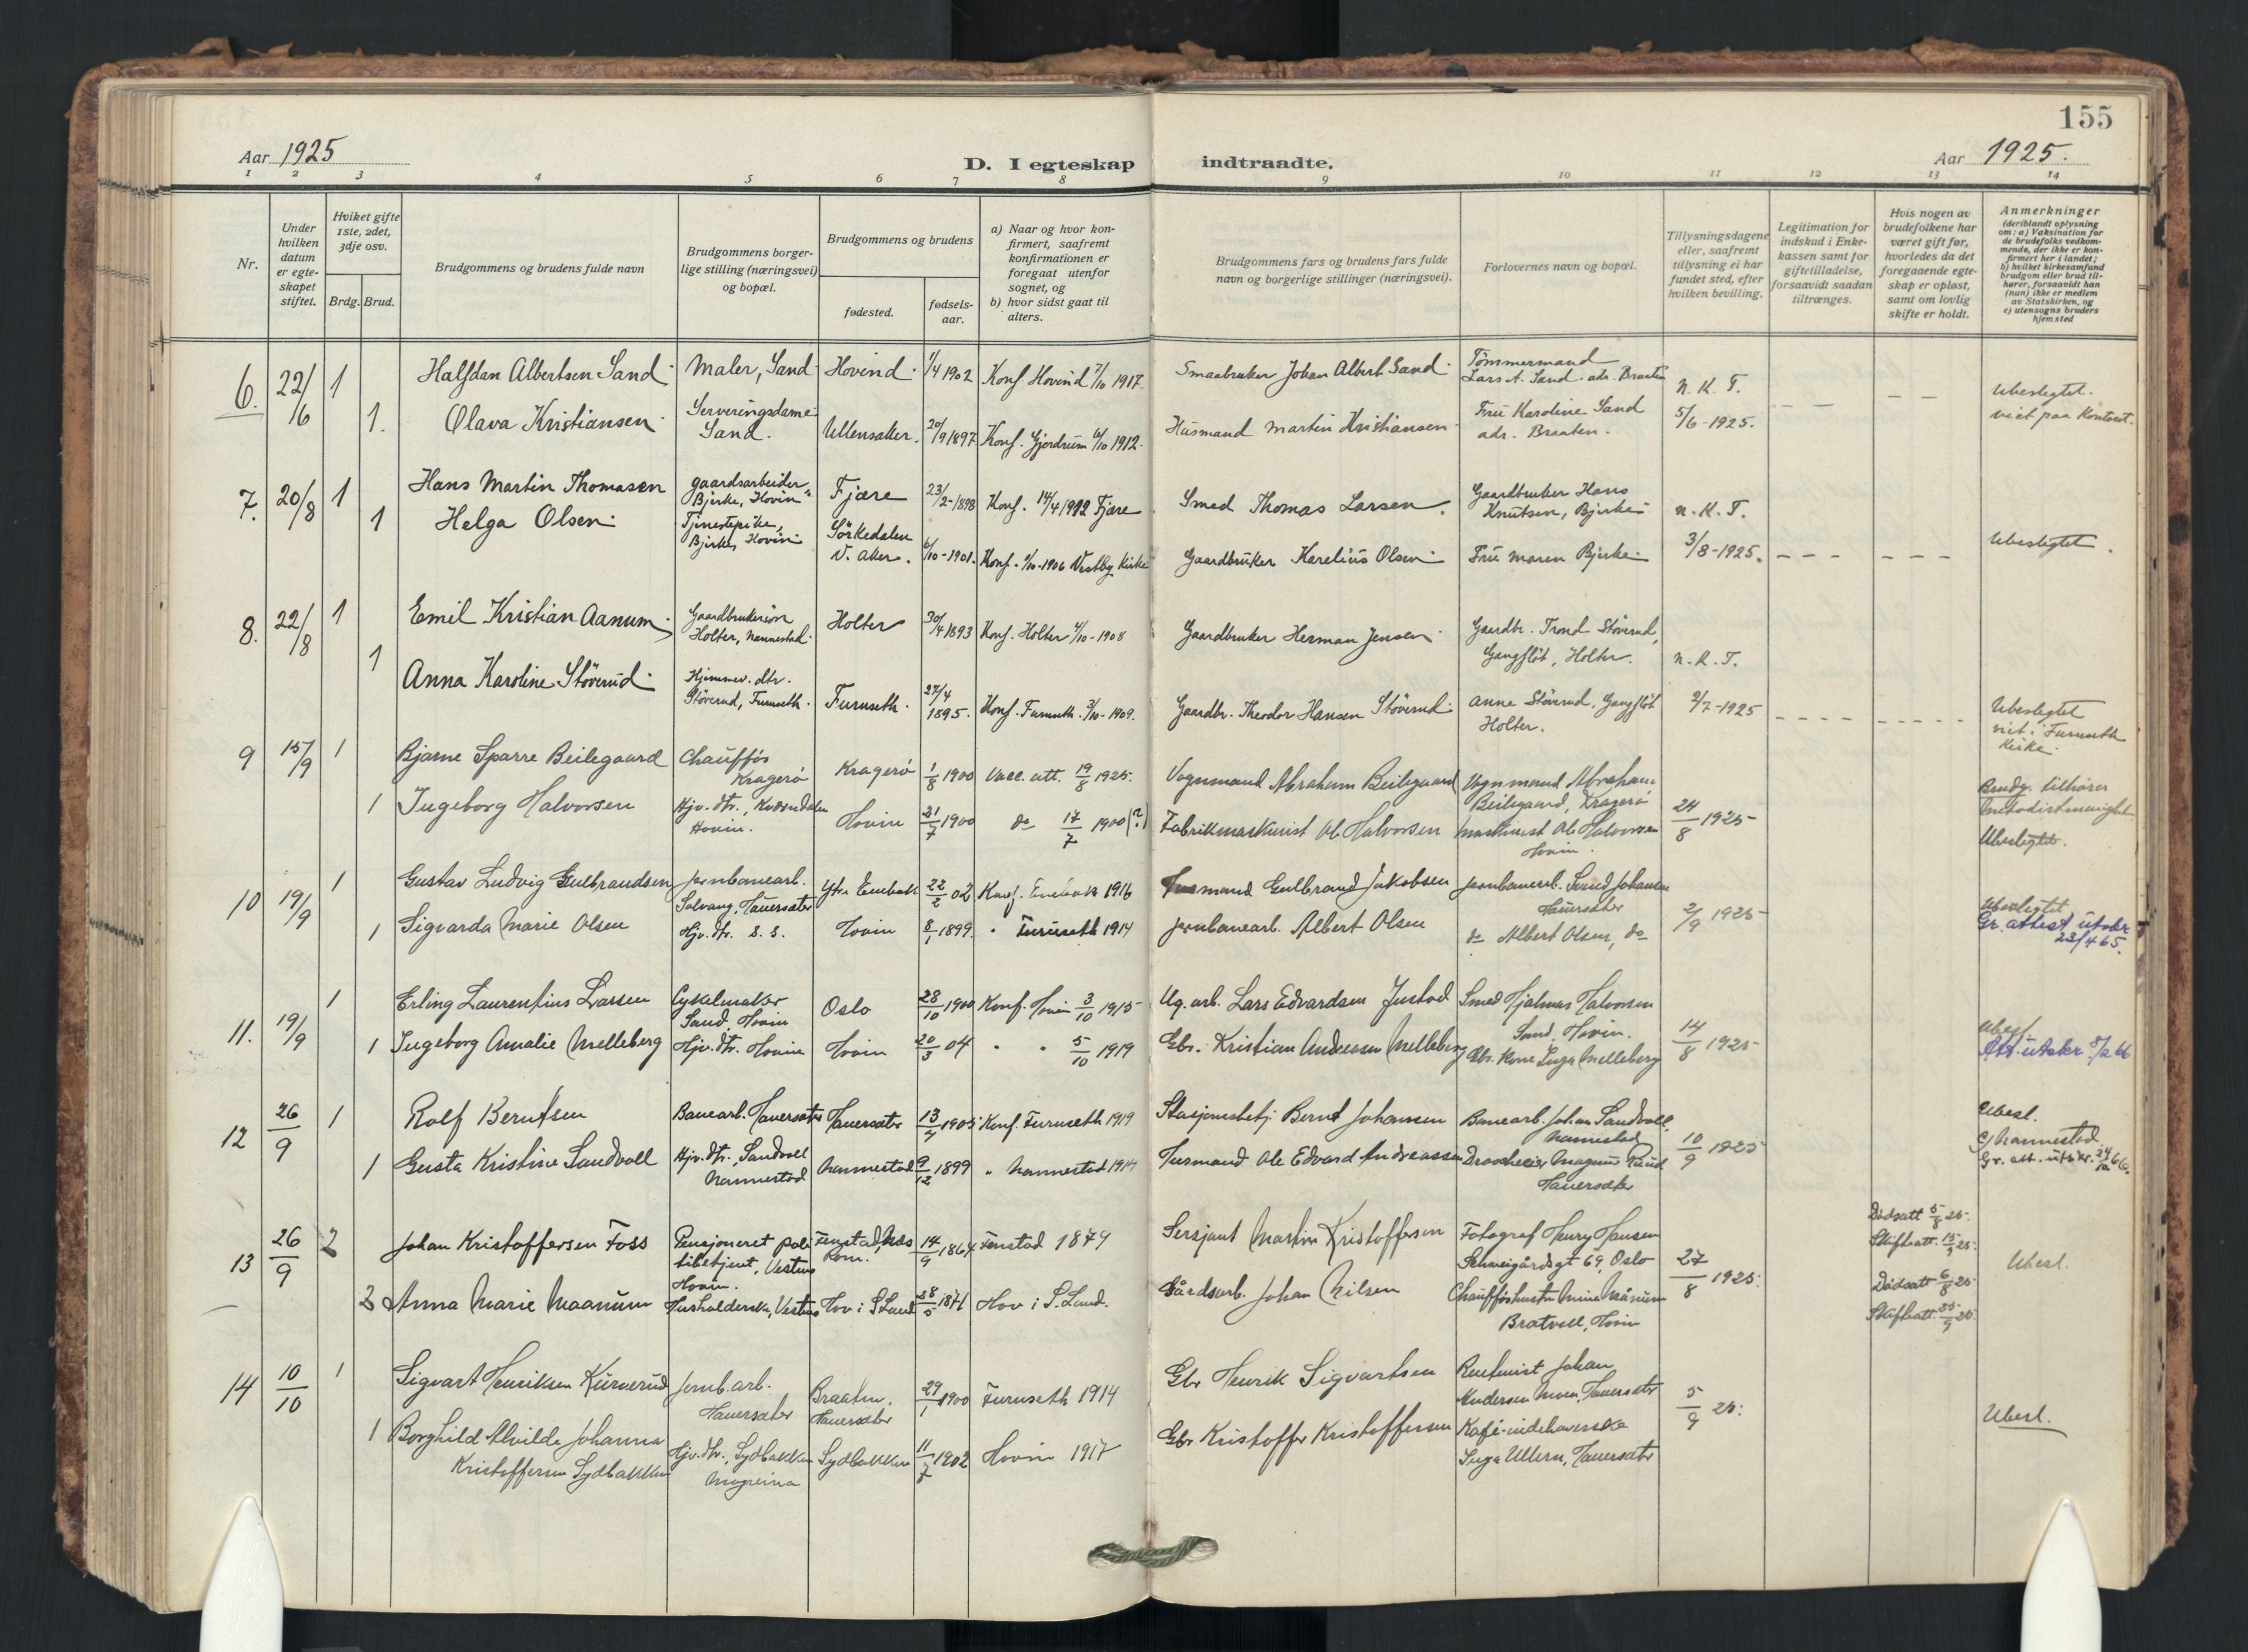 155
Aar 1925
D. I egteskap indtraadte.
Aar 1925.
1 2 3 4 5 6 7 8 9 10 11 12 13 14
Nr.
Under hvilken datum er egteskapet stiftet.
Hviket gifte 1ste, 2det, 3dje osv.
Brdg. Brud.
Brudgommens og brudens fulde navn
Brudgommens borgerlige stilling (næringsvei) og bopæl.
Brudgommens og brudens
fødested.
fødselsaar.
a) Naar og hvor konfirmert, saafremt konfirmationen er foregaat utenfor sognet, og
b) hvor sidst gaat til alters.
Brudgommens fars og brudens fars fulde navn og borgerlige stillinger (næringsvei).
Forlovernes navn og bopæl.
Tillysningsdagene eller, saafremt tillysning ei har fundet sted, efter hvilken bevilling.
Legitimation for indskud i Enkekassen samt for giftetilladelse, forsaavidt saadan tiltrænges.
Hvis nogen av brudefolkene har været gift før, hvorledes da det foregaaende egteskap er opløst, samt om lovlig skifte er holdt.
Anmerkninger
(deriblandt oplysning om: a) Vaksination for de brudefolks vedkommende, der ikke er konfirmert her i landet; b) hvilket kirkesamfund brudgom eller brud tilhører, forsaavidt han (hun) ikke er medlem av Statskirken, og c) utensogns bruders hjemsted
6. 22/6 1 Halfdan Albertsen Sand Maler, Sand Hovind 1/4 1902 Konf. Hovind 7/10 1917. Smaabruker Johan Albert Sand Tömmermand Lars A. Sand. adr. Braaten n. K. T. Ubeslegtet.
1. Olava Kristiansen Serveringsdame Sand. Ullensaker. 20/9 1897 Konf. Gjerdrum 6/10 1912. Husmand Martin Kristiansen Fru Karoline Sand adr. Braaten. 5/6-1925. viet paa Kontoret.
7. 20/8 1 Hans Martin Thomasen gaardsarbeider Bjerke, Hovin Fjære 23/2-1898 Konf. 14/4 1912 Fjære Smed Thomas Larsen. Gaardbruker Hans Knutsen, Bjerke n. K. T.
1 Helga Olsen Tjenestepike, Bjerke, Hovin Sörkedalen V. Aker. 6/10-1901. Konf. 1/10-1906 Vestby Kirke Gaardbruker Karelius Olsen Fru Maren Bjerke 3/8-1925. Ubeslegtet.
8. 22/8 1 Emil Kristian Aanum Gaardbrukersön Holter, Nannestad. Holter 30/4 1893 Konf. Holter 4/10-1908 Gaardbruker Herman Jensen Gaardbr. Trond Stöverud, Gangflöt, Holter. n. K. T.
1 Anna Karoline Stöverud Hjemmev. dtr. Stöverud, Furuseth. Furuseth. 27/4 1895. Konf. Furuseth. 3/10-1909. Gaardbr. Theodor Hansen Stöverud Anne Stöverud, Gangflöt Holter. 2/7-1925 Ubeslegtet viet i Furuseth Kirke.
9 15/9 1 Bjarne Sparre Beilegaard Chaufför Kragerö Kragerö 1/8 1900 Vacc. att. 19/8 1925. Vognmand Abraham Beilegaard Vognmand Abraham Beilegaard, Kragerö Brudg. tilhörer metodistmenighet
1 Ingeborg Halvorsen Hjv. dtr., Kværndalen Hovin. Hovin 31/7 1900 do 17/7 1900 (?) Fabrikmaskinist Ole Halvorsen Maskinist Ole Halvorsen Hovin. 24/8 1925 Ubeslegtet.
10 19/9 1 Gustav Ludvig Gulbrandsen Jernbanearb. Solvang, Hauersæter Ytre Enebak 22/2 02 Konf. Enebak 1916 Gulbrand Jakobsen Jernbanearb. Svend Johansen Hauersæter Ubeslegtet
1 Sigvarda Marie Olsen Hjv. dtr. s. s. Hovin 8/1 1899. " Furuseth 1914 Jernbanearb. Albert Olsen do Albert Olsen, do 2/9 1925 Gr. attest utskr 23/4 65.
11. 19/9 1 Erling Laurentius Larsen Cykelmaker Sand, Hovin Oslo 28/10 1900 Konf. Hovin 3/10 1915 Ug. arb. Lars Edvardsen Justad Smed Hjalmar Halvorsen Sand, Hovin.
1 Ingeborg Amalie Melleberg Hjv. dtr. Hovin Hovin 20/3 04 " " 5/10 1919 Gbr. Kristian Andersen Melleberg Gbr. kone Inga Melleberg 14/8 1925 Ubesl. Att. utskr. 8/2 66
12 26/9 1 Rolf Berntsen Banearb. Hauersæter Hauersæter 13/4 1903 Konf. Furuseth 1919 Stasjonsbetj. Bernt Johansen Banearb. Johan Sandvoll, Nannestad Ubesl.
1 Gusta Kristine Sandvoll Hjv. dtr., Sandvoll Nannestad Nannestad 9/12 1899 " Nannestad 1914 Turmand Ole Edvard Andreassen Droscheeier Magnus Ruud Hauersæter 10/9 1925 c) Nannestad Gr. att. utskr. 66.
13 26/9 2 Johan Kristoffersen Foss Pensjoneret politibetjent, Vestum Hovin. Fenstad, Næs Rom. 14/9 1864 Fenstad 1879 Sersjant Martin Kristoffersen Fotograf Henry Hansen Schweigårdsgt 69, Oslo 27/8 1925. Dödsatt 5/8 25. Skifteatt. 15/9 25. Ubesl.
2 Anna Marie Maanum Husholderske, Vestum Hov i S. Land 28/5 1876 Hov i S. Land. Gårdsarb. Johan Nilsen Chaufförhustru Mina Månum Bratvoll, Hovin Dödsatt 6/8 25. Skifteatt. 25/9 25.
14 10/10 1 Sigvart Henriksen Kurverud Jernb. arb. Hauersæter Braaten, Hauersæter 29/1 1900 Furuseth 1914 Gbr Henrik Sigvartsen Johan Andersen Moen, Hauersæter 5/9 25.
1 Borghild Alvilde Johanna Kristoffersen Sydbakken Hjv. dtr., Sydbakken Mogreina Sydbakken 11/7 1902 Hovin 1917 Gbr. Kristoffer Kristoffersen Kafé-indehaverske Inga Ullern, Hauersæter Ubesl.